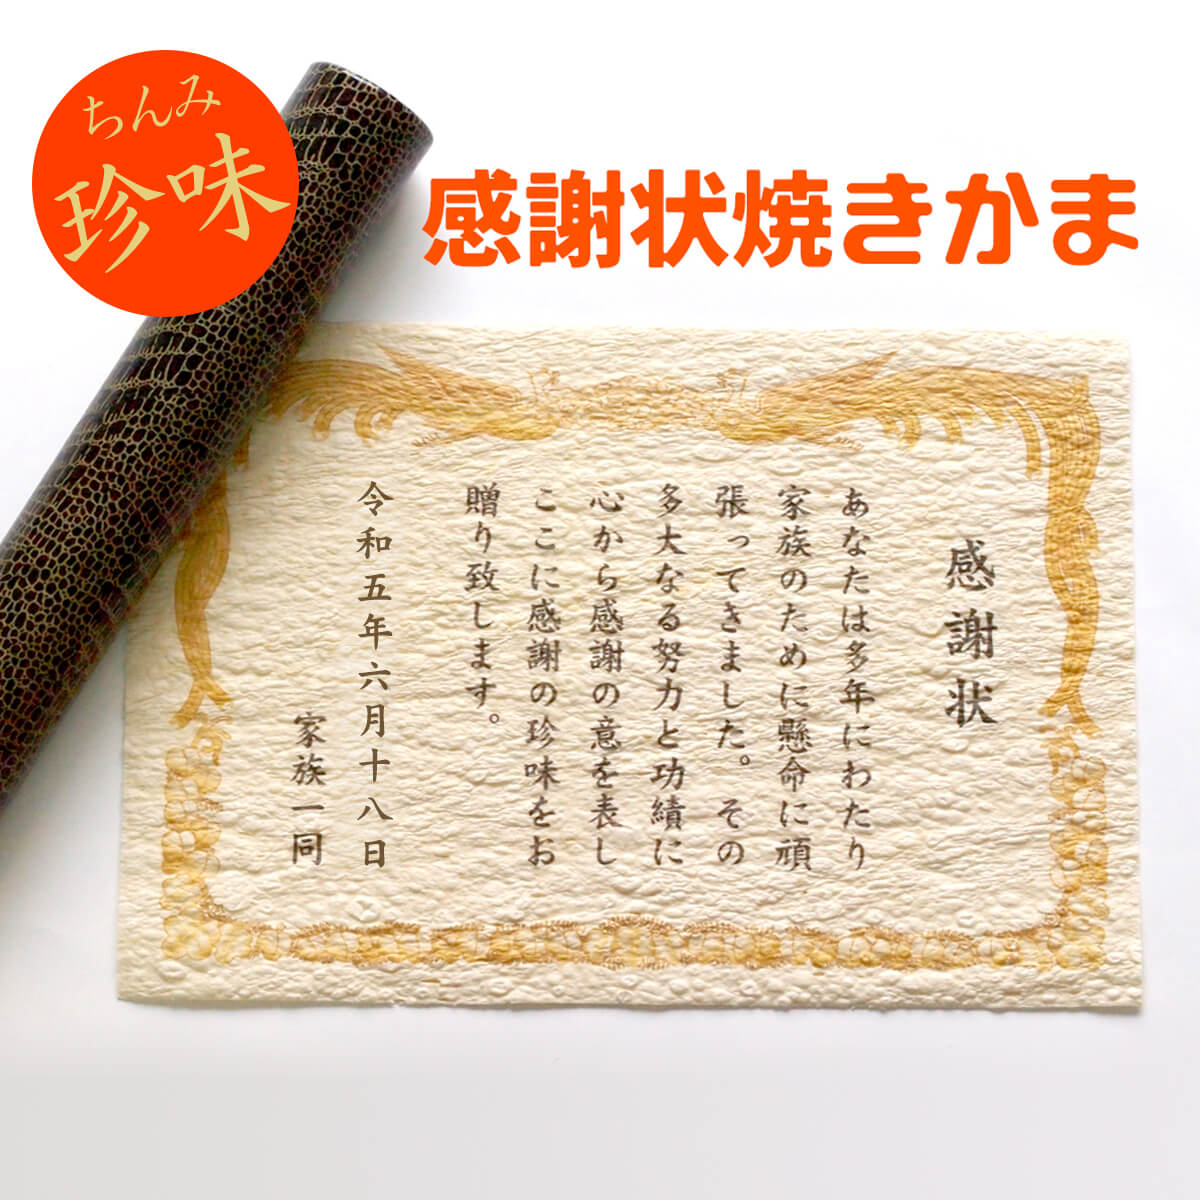 ちんみ
珍味
感謝状焼きかま
感謝状
あなたは多年にわたり
家族のために懸命に頑
張ってきました。その
多大なる努力と功績に
心から感謝の意を表し
ここに感謝の珍味をお
贈り致します。
令和五年六月十八日
家族一同